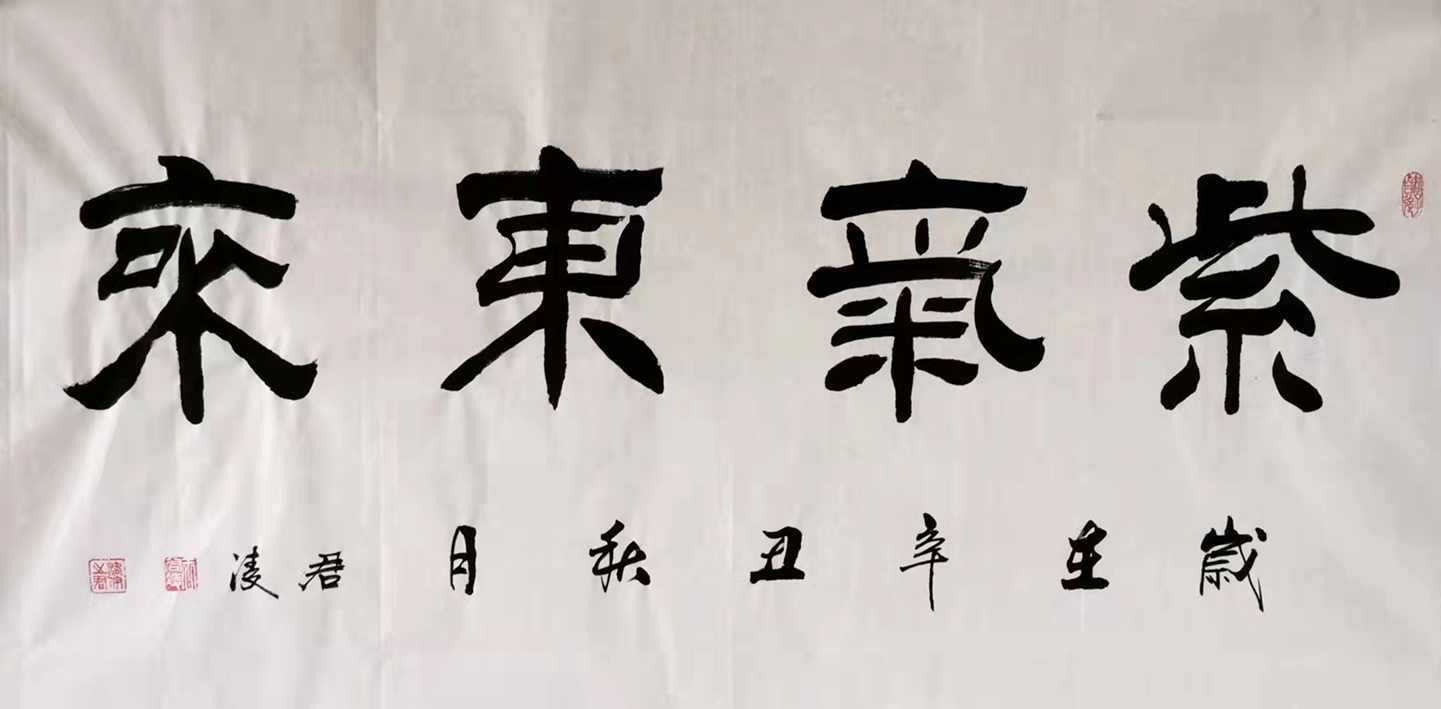 紫氣東來
歲在辛丑秋月君凌